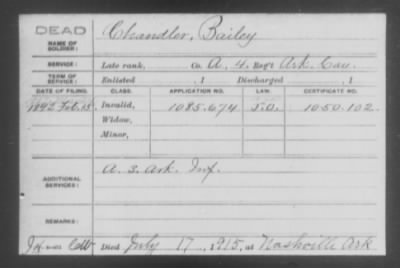 DEAD
NAME OF SOLDIER:
Chandler, Bailey
SERVICE:
Late rank, Co. A, 4. Reg't Ark. Cav.
TERM OF SERVICE:
Enlisted , 1 Discharged , 1
DATE OF FILING. CLASS. APPLICATION NO. LAW. CERTIFICATE NO.
1892 Feb. 15. Invalid, 1085.674 1050.102
Widow,
Minor,
ADDITIONAL SERVICES:
A. 3. Ark. Inf.
REMARKS:
Died July 17, 1915, at Nashville Ark